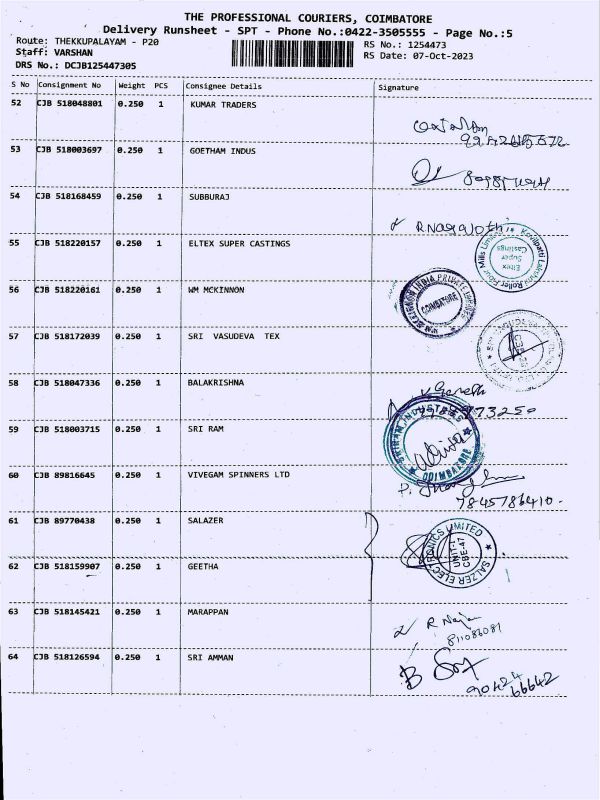 THE PROFESSIONAL COURIERS, COIMBATORE
Delivery Runsheet - SPT - Phone No.:0422-3505555 - Page No.:5
Route: THEKKUPALAYAM - P20
RS No.: 1254473
Staff: VARSHAN
RS Date: 07-Oct-2023
DRS No.: DCJB12544730S
S No Consignment No Weight PCS Consignee Details Signature
52 CJB 518048801 0.250 1 KUMAR TRADERS
53 CJB 518003697 0.250 1 GOETHAM INDUS
54 CJB 518168459 0.250 1 SUBBURAJ
55 CJB 518220157 0.250 1 ELTEX SUPER CASTINGS
Kovilpatti Lakshmi Roller Flour Mills Limited
Eltex
Super
Castings
56 CJB 518220161 0.250 1 WM MCKINNON
INDIA PRIVATE LIMITED
COIMBATORE
57 CJB 518172039 0.250 1 SRI VASUDEVA TEX
58 CJB 518047336 0.250 1 BALAKRISHNA
73250
59 CJB 518003715 0.250 1 SRI RAM
SRIRAM INDUSTRIES
COIMBATORE
60 CJB 89816645 0.250 1 VIVEGAM SPINNERS LTD
7845786410
61 CJB 89770438 0.250 1 SALAZER
SALZER ELECTRONICS LIMITED
UNIT-1
CBE-47
62 CJB 518159907 0.250 1 GEETHA
63 CJB 518145421 0.250 1 MARAPPAN
64 CJB 518126594 0.250 1 SRI AMMAN
90424
66642